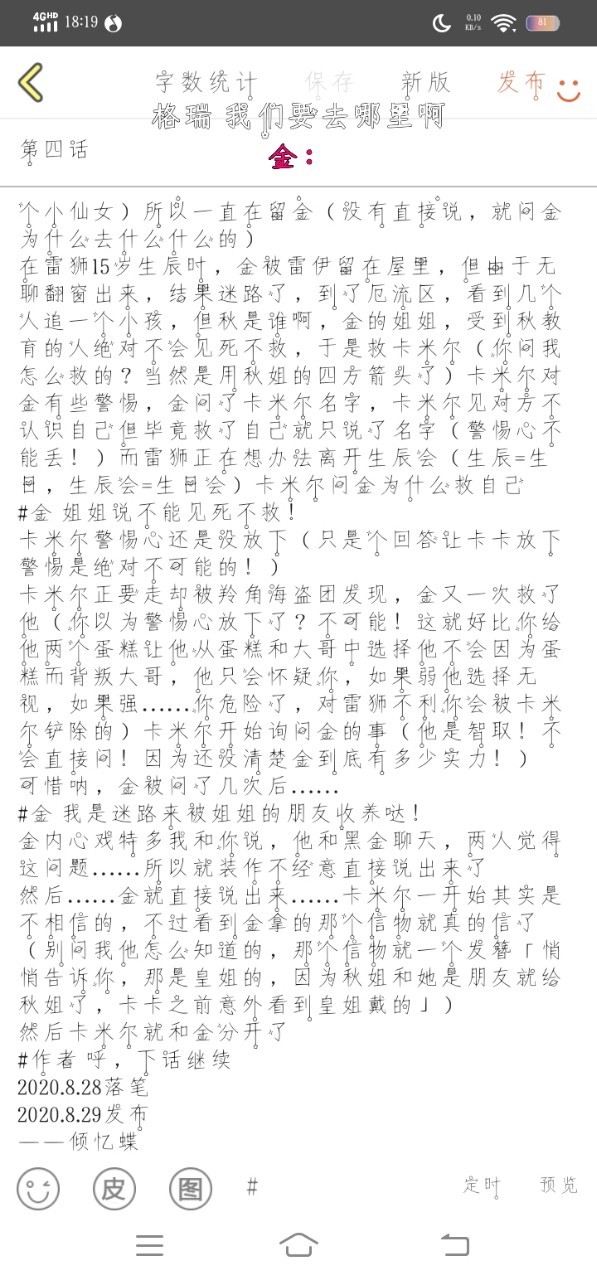 4GHD 18:19 0.10 KB/s 81
字数统计 保存 新版 发布
格瑞 我们要去哪里啊
第四话
金：
个小仙女）所以一直在留金（没有直接说，就问金
为什么去什么什么的）
在雷狮15岁生辰时，金被雷伊留在屋里，但由于无
聊翻窗出来，结果迷路了，到了厄流区，看到几个
人追一个小孩，但秋是谁啊，金的姐姐，受到秋教
育的人绝对不会见死不救，于是救卡米尔（你问我
怎么救的？当然是用秋姐的四方箭头了）卡米尔对
金有些警惕，金问了卡米尔名字，卡米尔见对方不
认识自己但毕竟救了自己就只说了名字（警惕心不
能丢！）而雷狮正在想办法离开生辰会（生辰=生
日，生辰会=生日会）卡米尔问金为什么救自己
#金 姐姐说不能见死不救！
卡米尔警惕心还是没放下（只是个回答让卡卡放下
警惕是绝对不可能的！）
卡米尔正要走却被羚角海盗团发现，金又一次救了
他（你以为警惕心放下了？不可能！这就好比你给
他两个蛋糕让他从蛋糕和大哥中选择他不会因为蛋
糕而背叛大哥，他只会怀疑你，如果弱他选择无
视，如果强……你危险了，对雷狮不利你会被卡米
尔铲除的）卡米尔开始询问金的事（他是智取！不
会直接问！因为还没清楚金到底有多少实力！）
可惜呐，金被问了几次后……
#金 我是迷路来被姐姐的朋友收养哒！
金内心戏特多我和你说，他和黑金聊天，两人觉得
这问题……所以就装作不经意直接说出来了
然后……金就直接说出来……卡米尔一开始其实是
不相信的，不过看到金拿的那个信物就真的信了
（别问我他怎么知道的，那个信物就一个发簪「悄
悄告诉你，那是皇姐的，因为秋姐和她是朋友就给
秋姐了，卡卡之前意外看到皇姐戴的」）
然后卡米尔就和金分开了
#作者 呼，下话继续
2020.8.28落笔
2020.8.29发布
——倾忆蝶
皮 图 # 定时 预览